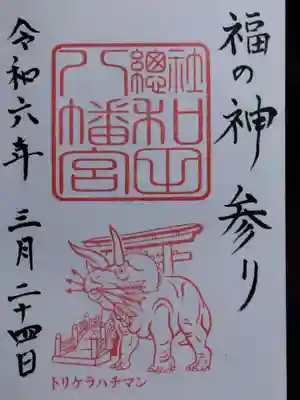 福の神参り
社和田
總八幡宮
令和六年 三月二十四日
トリケラハチマン